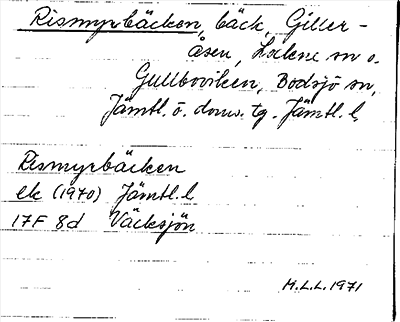 Rismyrbäcken, bäck, Giller-
åsen, Lockne sn o.
Gullboviken, Bodsjö sn,
Jämtl. ö. doms. tg. Jämtl. l.
Rismyrbäcken
ek (1970) Jämtl. l
17F 8d Väcksjön
M.L.L. 1971